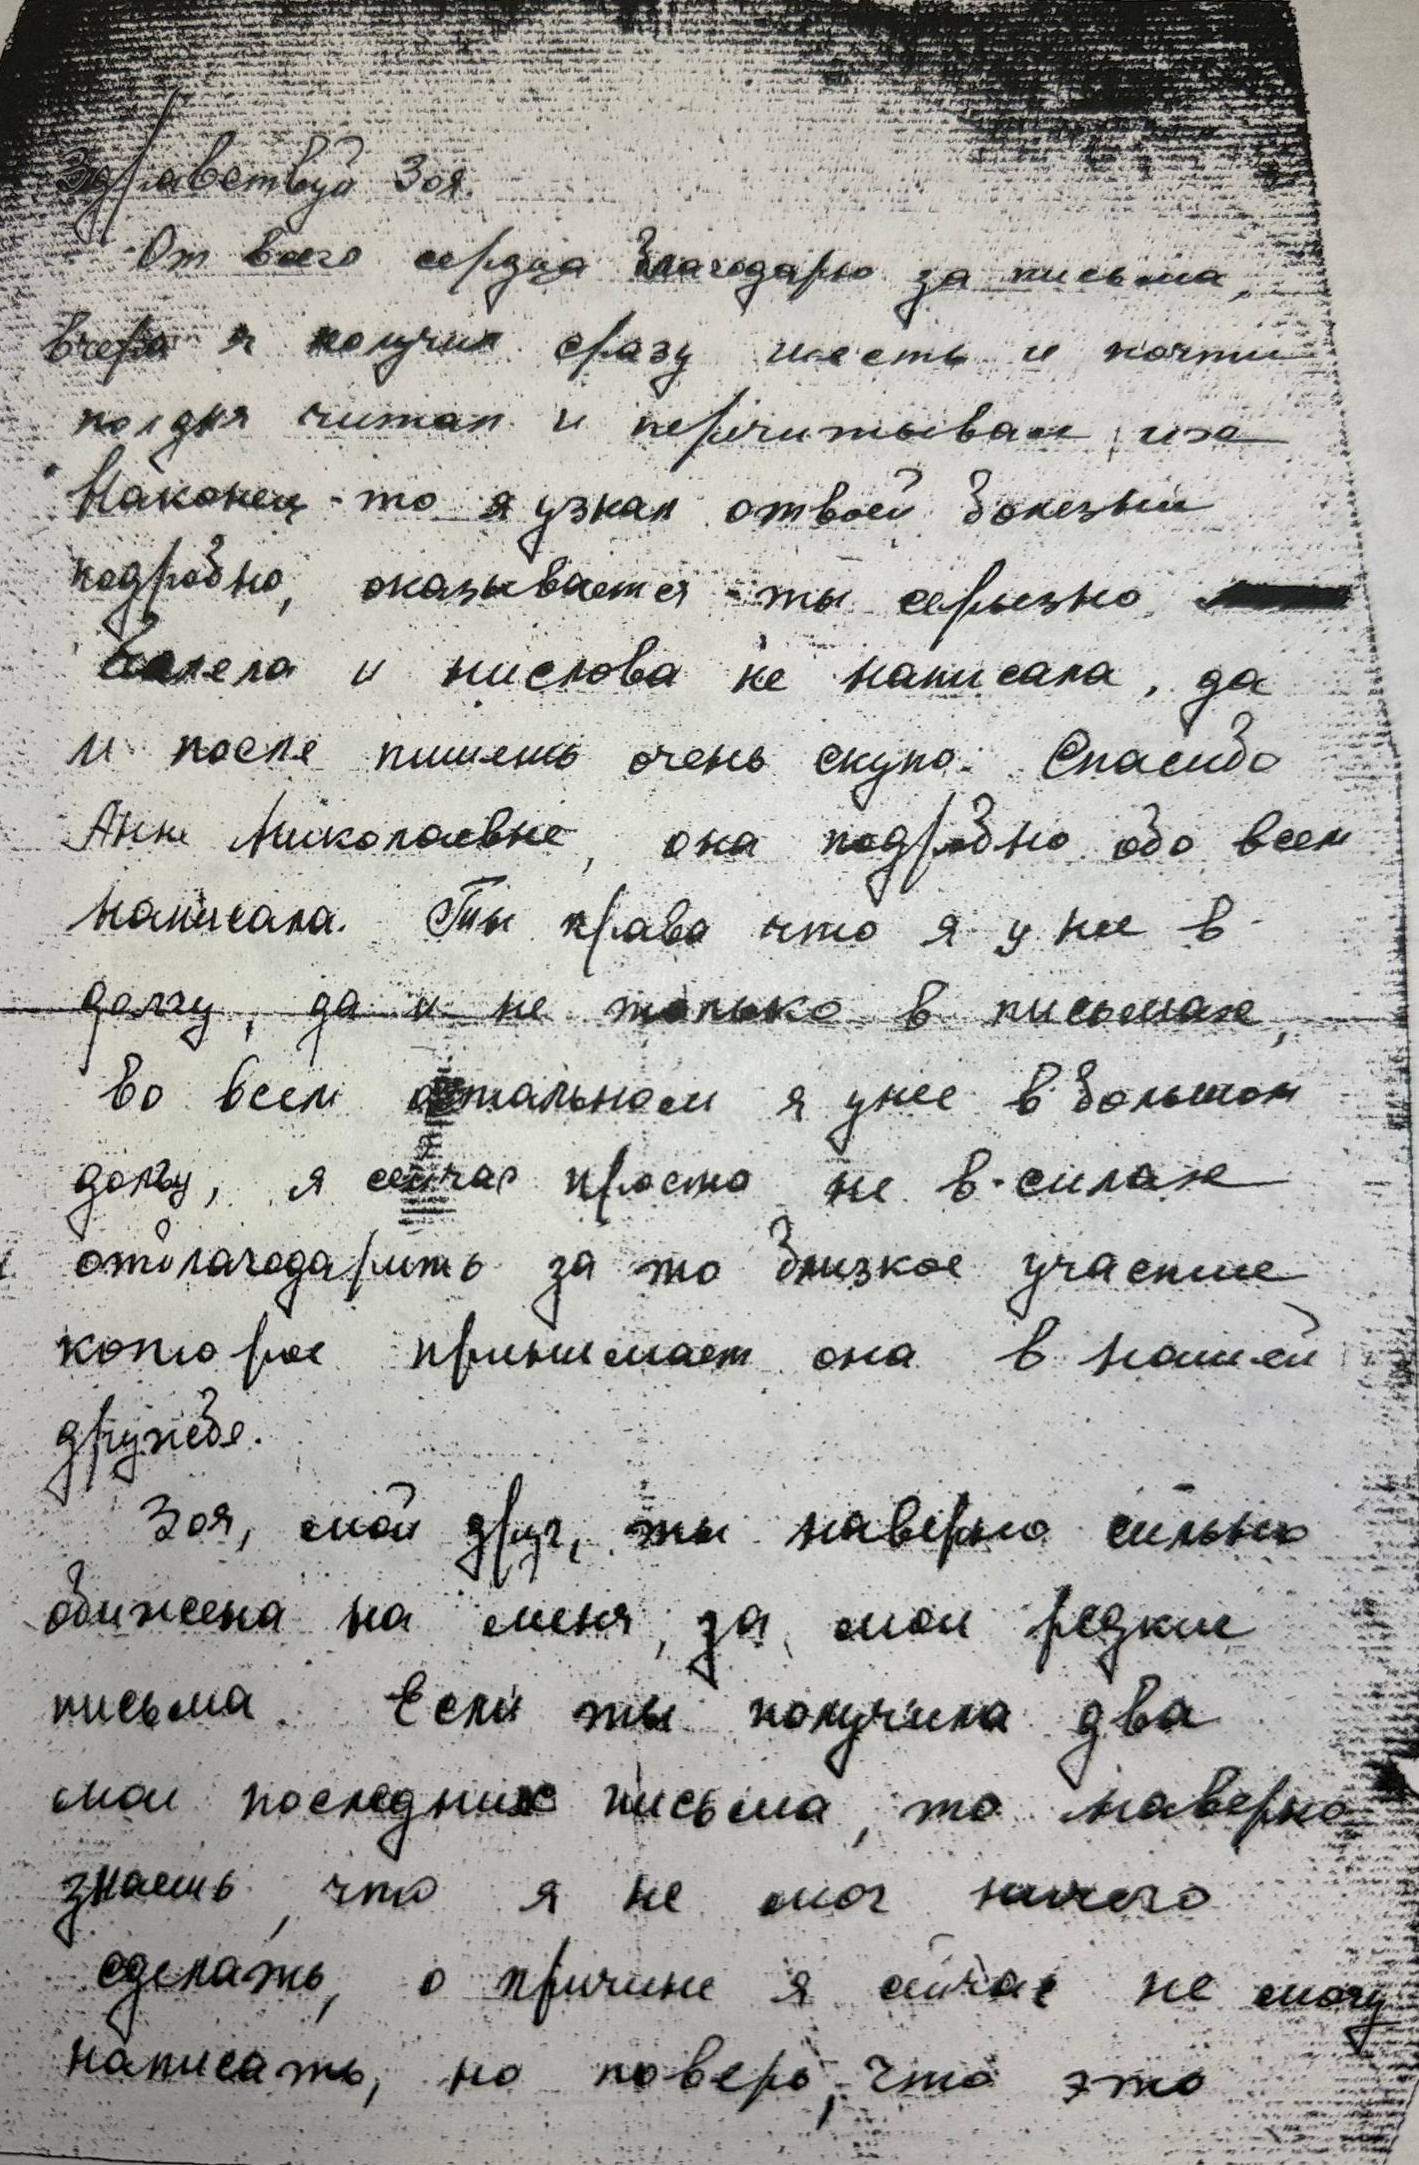 Здравствуй Зоя.
От всего сердца благодарю за письма,
вчера я получил сразу шесть и почти
полдня читал и перечитывал их
Наконец-то я узнал отвоей болезни
подробно, оказывается ты серьезно
болела и нислова не написала, да
и после пишешь очень скупо. Спасибо
Анне Николаевне, она подробно обо всем
написала. Ты права что я у нее в
долгу, да и не только в письмах,
во всем остальном я унее в большом
долгу, я сейчас просто не в силах
отблагодарить за то близкое участие
которое принимает она в нашей
дружбе.
Зоя, мой друг, ты наверно сильно
обижена на меня, за мои редкие
письма. Если ты получила два
мои последних письма, то наверно
знаешь, что я не мог ничего
сделать, о причине я сейчас не могу
написать, но поверь, что это